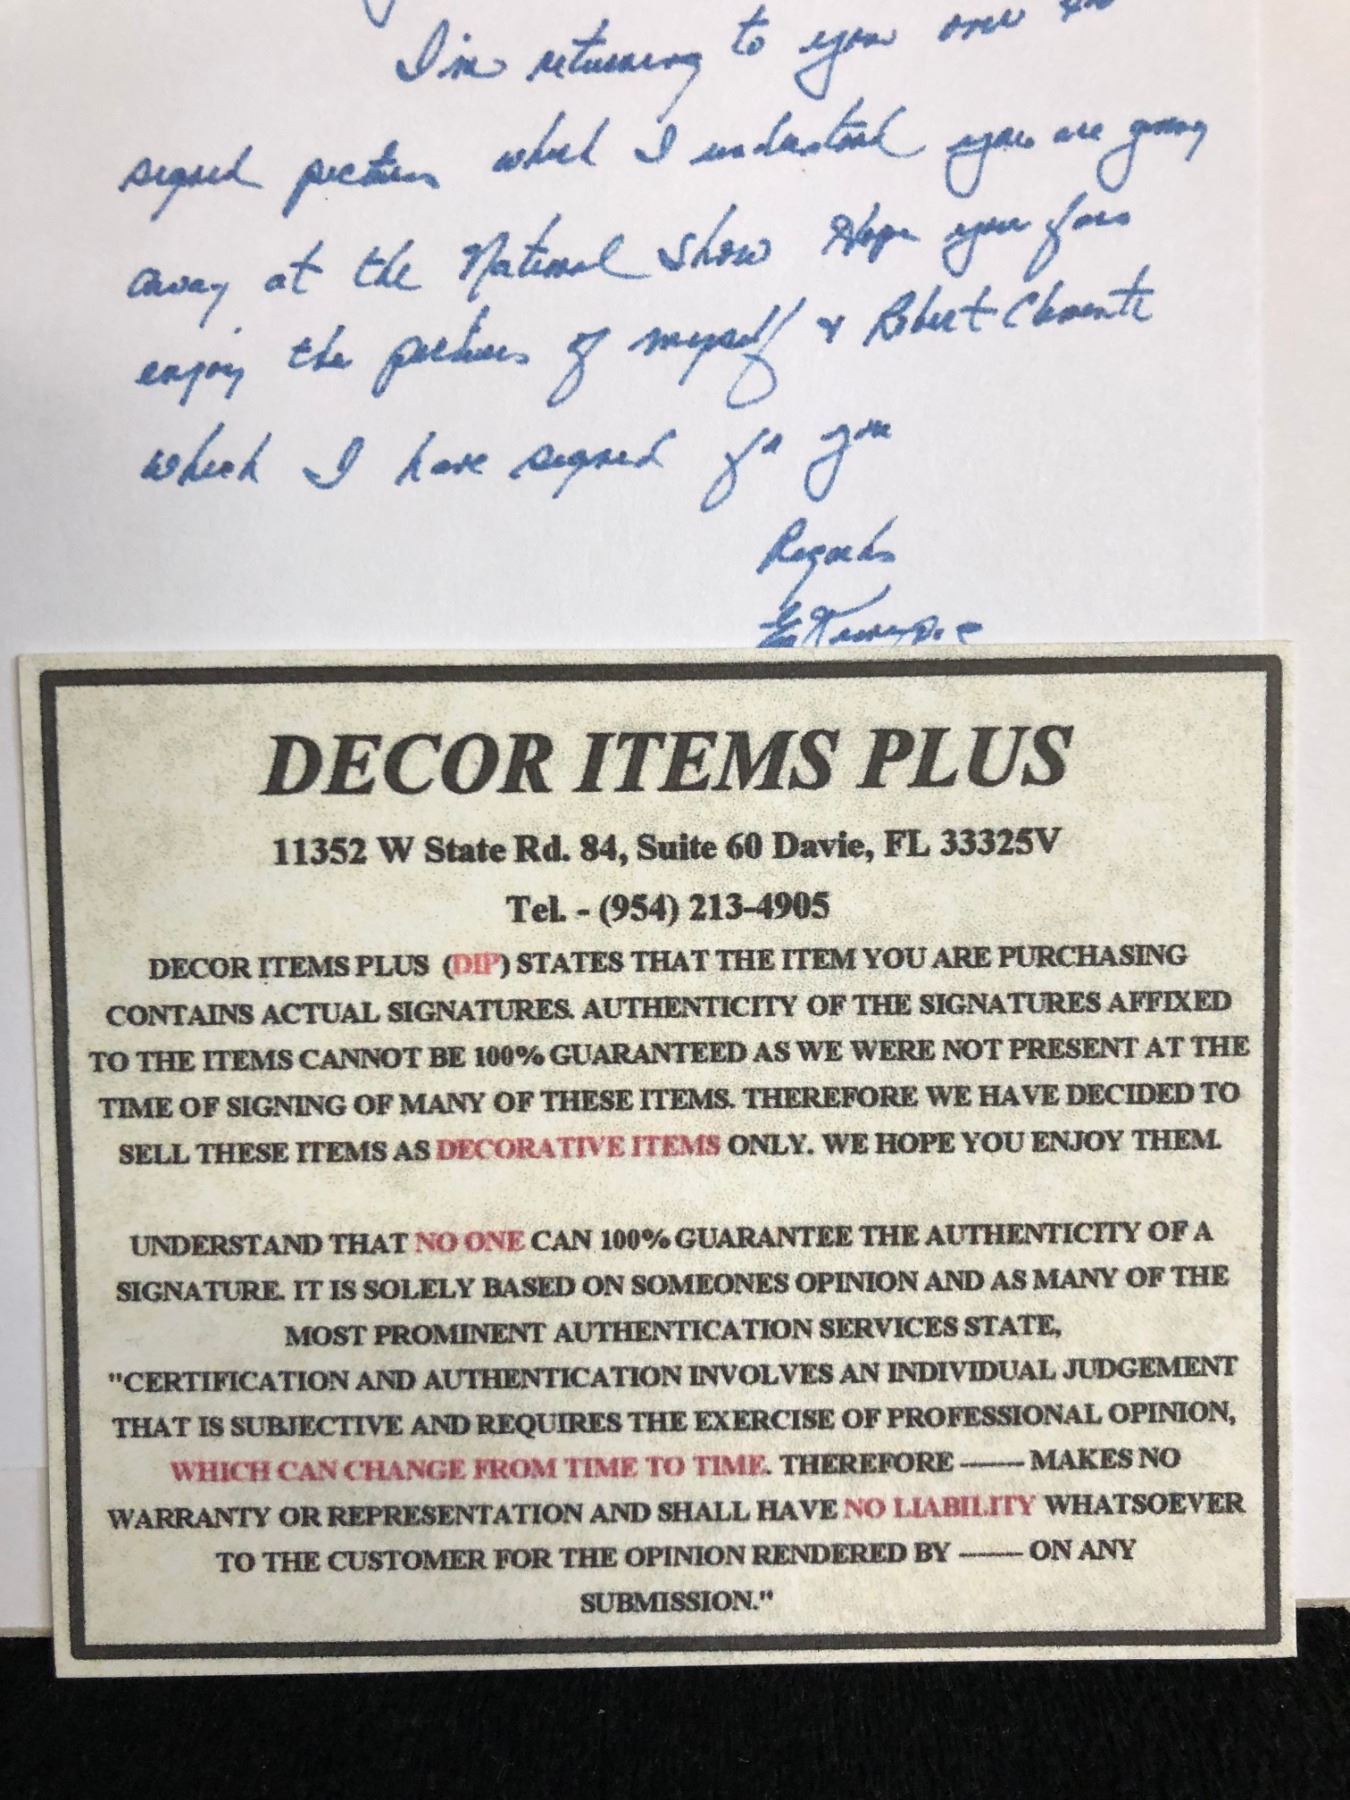 I'm returning to you one
signed pictures which I understand you are giving
away at the National Show Hope you fans
enjoy the pictures of myself & Robert Clemente
which I have signed for you
Regards
DECOR ITEMS PLUS
11352 W State Rd. 84, Suite 60 Davie, FL 33325V
Tel. - (954) 213-4905
DECOR ITEMS PLUS (DIP) STATES THAT THE ITEM YOU ARE PURCHASING
CONTAINS ACTUAL SIGNATURES. AUTHENTICITY OF THE SIGNATURES AFFIXED
TO THE ITEMS CANNOT BE 100% GUARANTEED AS WE WERE NOT PRESENT AT THE
TIME OF SIGNING OF MANY OF THESE ITEMS. THEREFORE WE HAVE DECIDED TO
SELL THESE ITEMS AS DECORATIVE ITEMS ONLY. WE HOPE YOU ENJOY THEM.
UNDERSTAND THAT NO ONE CAN 100% GUARANTEE THE AUTHENTICITY OF A
SIGNATURE. IT IS SOLELY BASED ON SOMEONES OPINION AND AS MANY OF THE
MOST PROMINENT AUTHENTICATION SERVICES STATE,
"CERTIFICATION AND AUTHENTICATION INVOLVES AN INDIVIDUAL JUDGEMENT
THAT IS SUBJECTIVE AND REQUIRES THE EXERCISE OF PROFESSIONAL OPINION,
WHICH CAN CHANGE FROM TIME TO TIME. THEREFORE —— MAKES NO
WARRANTY OR REPRESENTATION AND SHALL HAVE NO LIABILITY WHATSOEVER
TO THE CUSTOMER FOR THE OPINION RENDERED BY —— ON ANY
SUBMISSION."